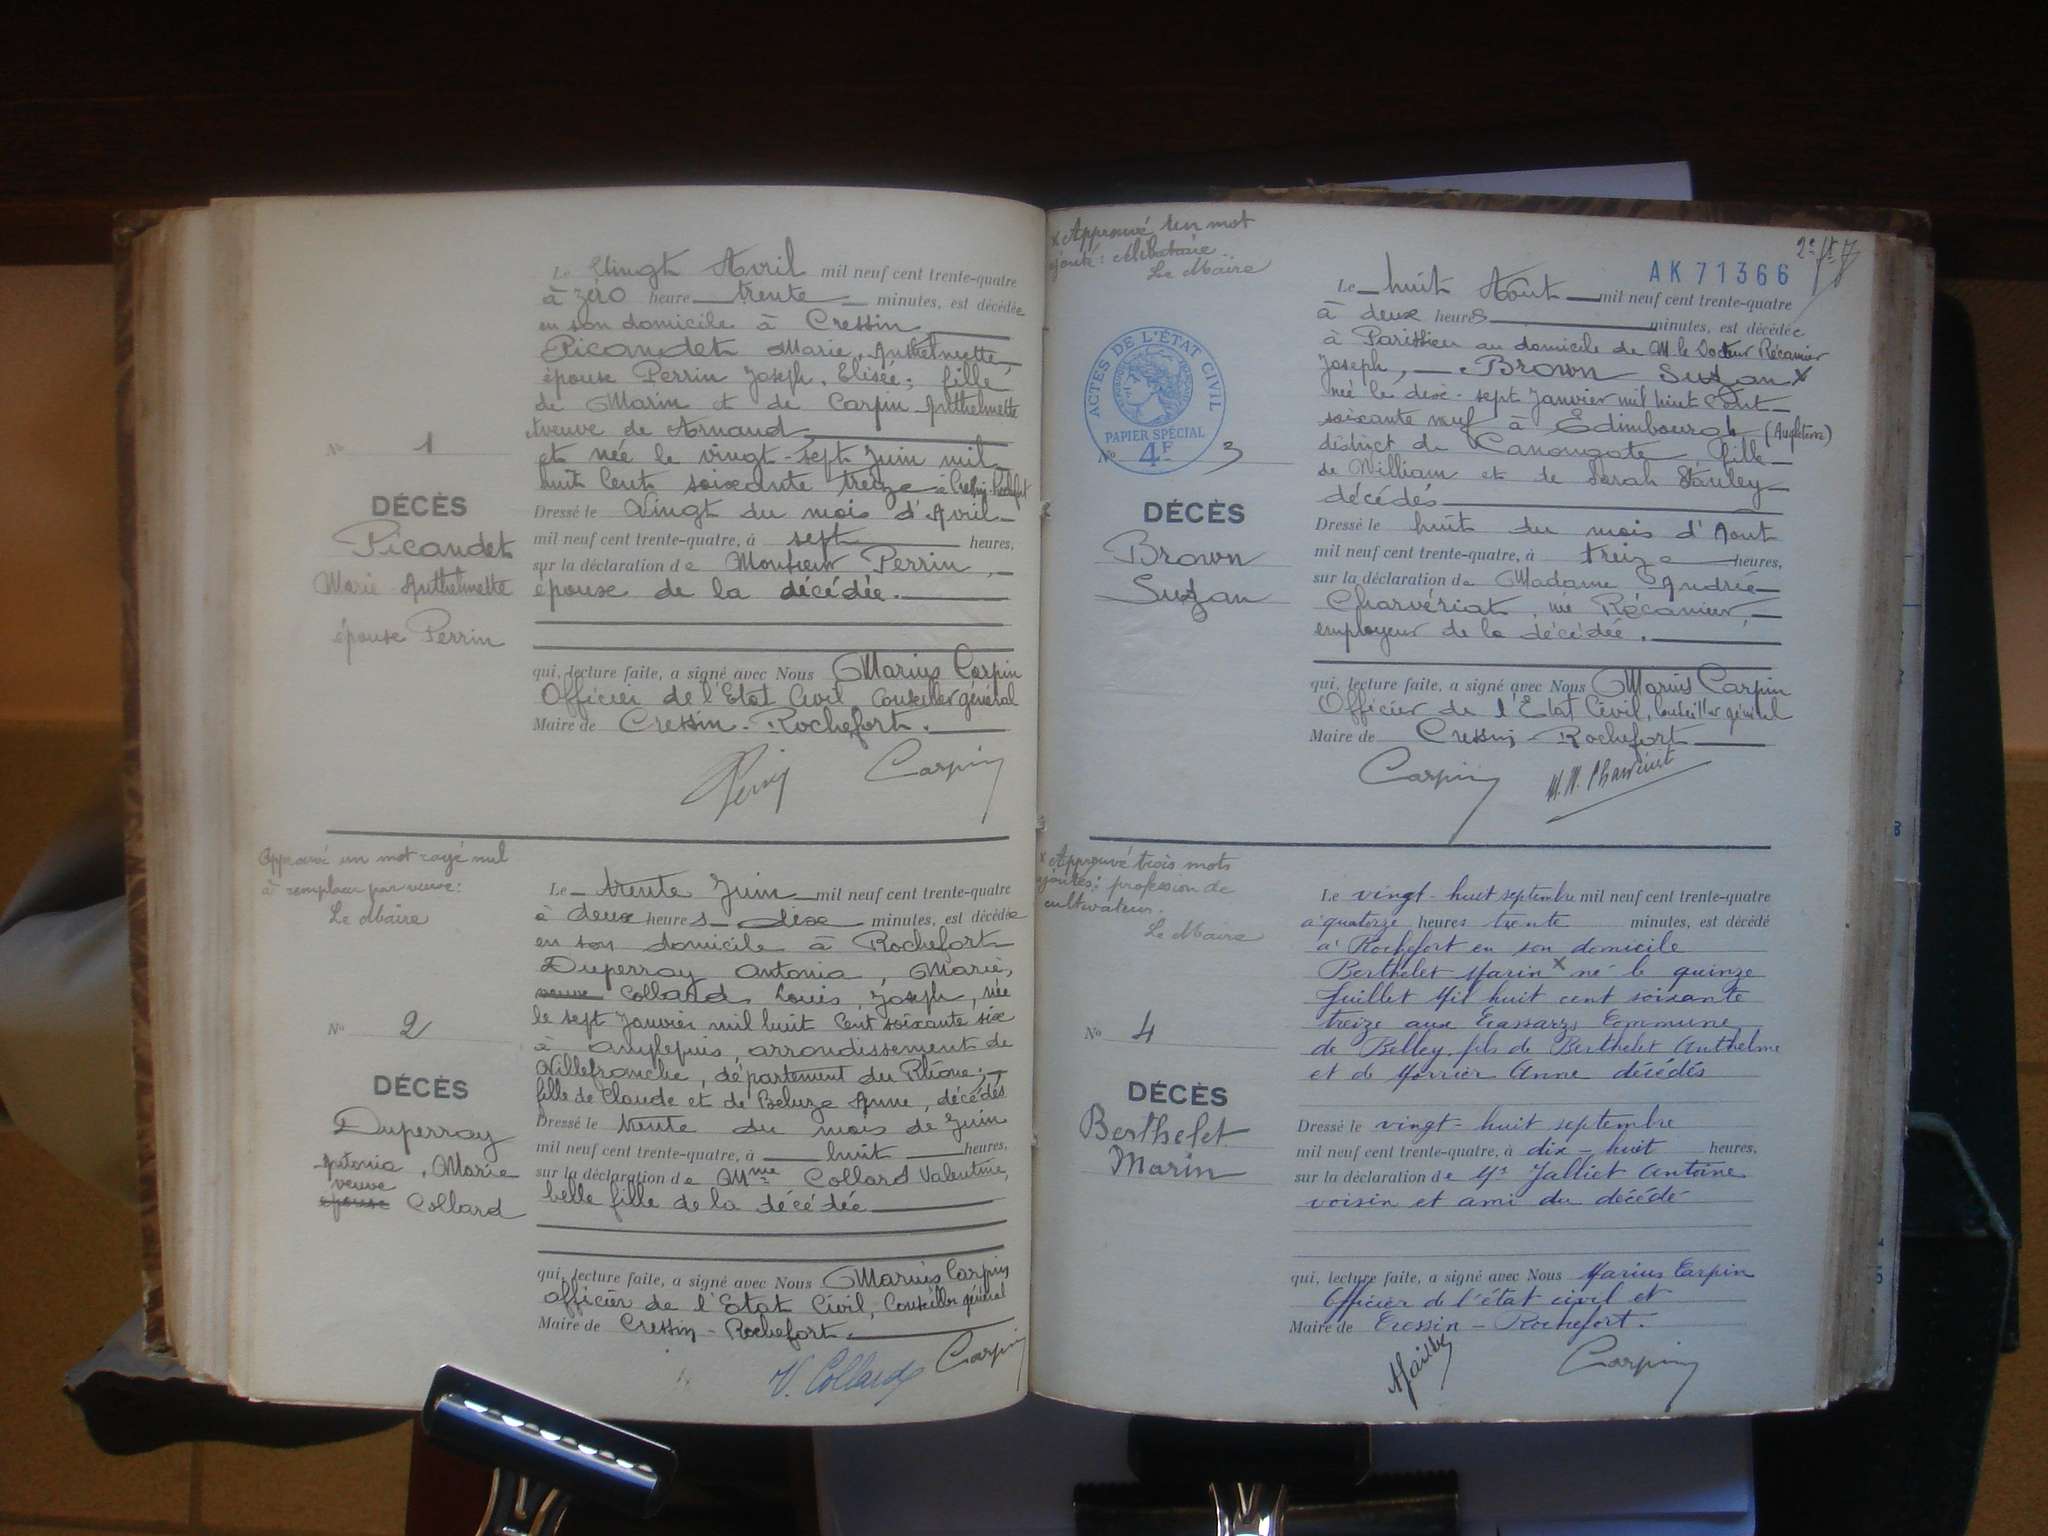 Le Vingt Avril mil neuf cent trente-quatre
à zéro heure trente minutes, est décédée
en son domicile à Cressin
Picaudet Marie, Anthelmette,
épouse Perrin Joseph, Elisée; fille
de Marin et de Carpin Anthelmette
veuve de Arnaud,
et née le vingt-sept Juin mil
huit Cent soixante treize à Cressin-Rochefort
No 1
DÉCÈS
Picaudet
Marie Anthelmette
épouse Perrin
Dressé le Vingt du mois d'Avril
mil neuf cent trente-quatre, à sept heures,
sur la déclaration de Monsieur Perrin,
épouse de la décédée.
qui, lecture faite, a signé avec Nous Marius Carpin
Officier de l'Etat Civil Conseiller général
Maire de Cressin-Rochefort.
Carpin
Approuvé un mot rayé nul
à remplacer par veuve:
Le Maire
Le trente Juin mil neuf cent trente-quatre
à deux heures dix minutes, est décédée
en son domicile à Rochefort
Duperray Antonia, Marie,
veuve Collard Louis, Joseph, née
le sept Janvier mil huit Cent soixante six
à Amplepuis, arrondissement de
Villefranche, département du Rhône;
fille de Claude et de Beluze Anne, décédés
No 2
DÉCÈS
Duperray
Antonia, Marie
veuve
épouse Collard
Dressé le trente du mois de Juin
mil neuf cent trente-quatre, à huit heures,
sur la déclaration de Mme Collard Valentine,
belle fille de la décédée
qui, lecture faite, a signé avec Nous Marius Carpin
officier de l'Etat Civil, Conseiller général
Maire de Cressin-Rochefort.
V. Collard Carpin
x Approuvé un mot
ajouté:
Le Maire
2e ft
AK 71366
ACTES DE L'ÉTAT CIVIL
PAPIER SPÉCIAL
4F
Le huit Aout mil neuf cent trente-quatre
à deux heures minutes, est décédée
à Parissieu au domicile de M. le Docteur Récamier
Joseph, Brown Suzan x
née le dix-sept Janvier mil huit Cent
soixante neuf à Edimbourgh (Angleterre)
district de Canongate, fille
de William et de Sarah Stanley
décédés
No 3
DÉCÈS
Brown
Suzan
Dressé le huit du mois d'Aout
mil neuf cent trente-quatre, à treize heures,
sur la déclaration de Madame Andrée
Charvériat, née Récamier,
employeur de la décédée.
qui, lecture faite, a signé avec Nous Marius Carpin
Officier de l'Etat Civil, Conseiller général
Maire de Cressin-Rochefort
Carpin
x Approuvé trois mots
ajoutés: profession de
cultivateur.
Le Maire
Le vingt-huit septembre mil neuf cent trente-quatre
à quatorze heures trente minutes, est décédé
à Rochefort en son domicile
Berthelet Marin x né le quinze
Juillet Mil huit cent soixante
treize aux Commune
de Belley, fils de Berthelet Anthelme
et de Anne décédés
No 4
DÉCÈS
Berthelet
Marin
Dressé le vingt-huit septembre
mil neuf cent trente-quatre, à dix-huit heures,
sur la déclaration de Mr Antoine
voisin et ami du décédé
qui, lecture faite, a signé avec Nous Marius Carpin
Officier de l'état civil et
Maire de Cressin-Rochefort.
Carpin